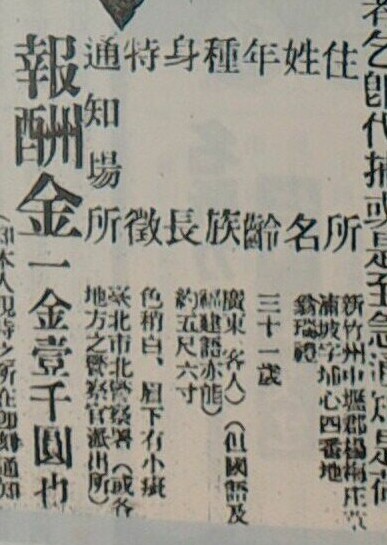 者乞即代捕或是至急
住所 新竹州中壢郡楊梅庄
湳坡字埔心四番地
姓名 翁瑞禮
年齡 三十一歲
種族 廣東(客人)(但國語及
福建語亦能)
身長 約五尺六寸
特徵 色稍白、眉下有小
通知場所 臺北市北警察署(或各
地方之警察官派出所)
報酬金 一金壹千圓也
本人現時之所在即刻通知